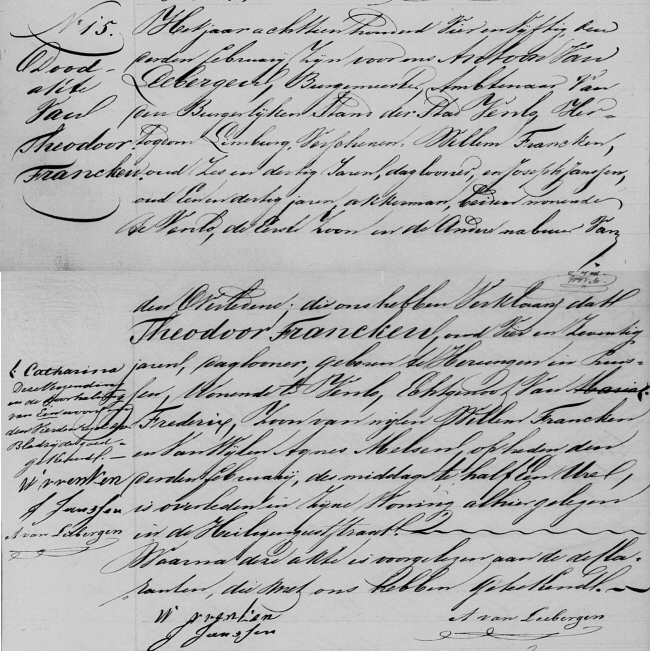 N° 15.
Dood-
akte
Van
Theodoor
Francken.
Het jaar achttien honderd Vier en Vijftig den
derden february, Zijn voor ons Antoon Van
Leebergen, Burgemeester, Ambtenaar Van
den Burgerlijken Stand der Stad Venlo, Her-
togdom Limburg, Verschenen: Willem Francken,
oud Zes en dertig Jaren, daglooner, en Joseph Janssen,
oud Een en dertig jaren, akkerman, beiden wonende
te Venlo, de Eerste Zoon en de Andere nabuur Van
den Overledene; die ons hebben Verklaard dat
Theodoor Francken, oud Vier en Zeventig
jaren, daglooner, geboren te Herongen in Pruis-
sen, wonende te Venlo, Echtgenoot Van Maria
Frederix, Zoon van wijlen Willem Francken
en Van Wijlen Agnes Melsen, op heden den
derden february, des middags te half Een Ure,
is overleden in Zijne Woning alhier gelegen
in de Heiligengeeststraat.
Waarna deze akte is voorgelezen aan de decla-
ranten, die met ons hebben geteekend.
W vrenken
J Janssen
A van Leebergen
Catharina
Deze
en de
van Een woord
den Vierden
Bladzijde goed-
gekeurd
W vrenken
J Janssen
A van Leebergen